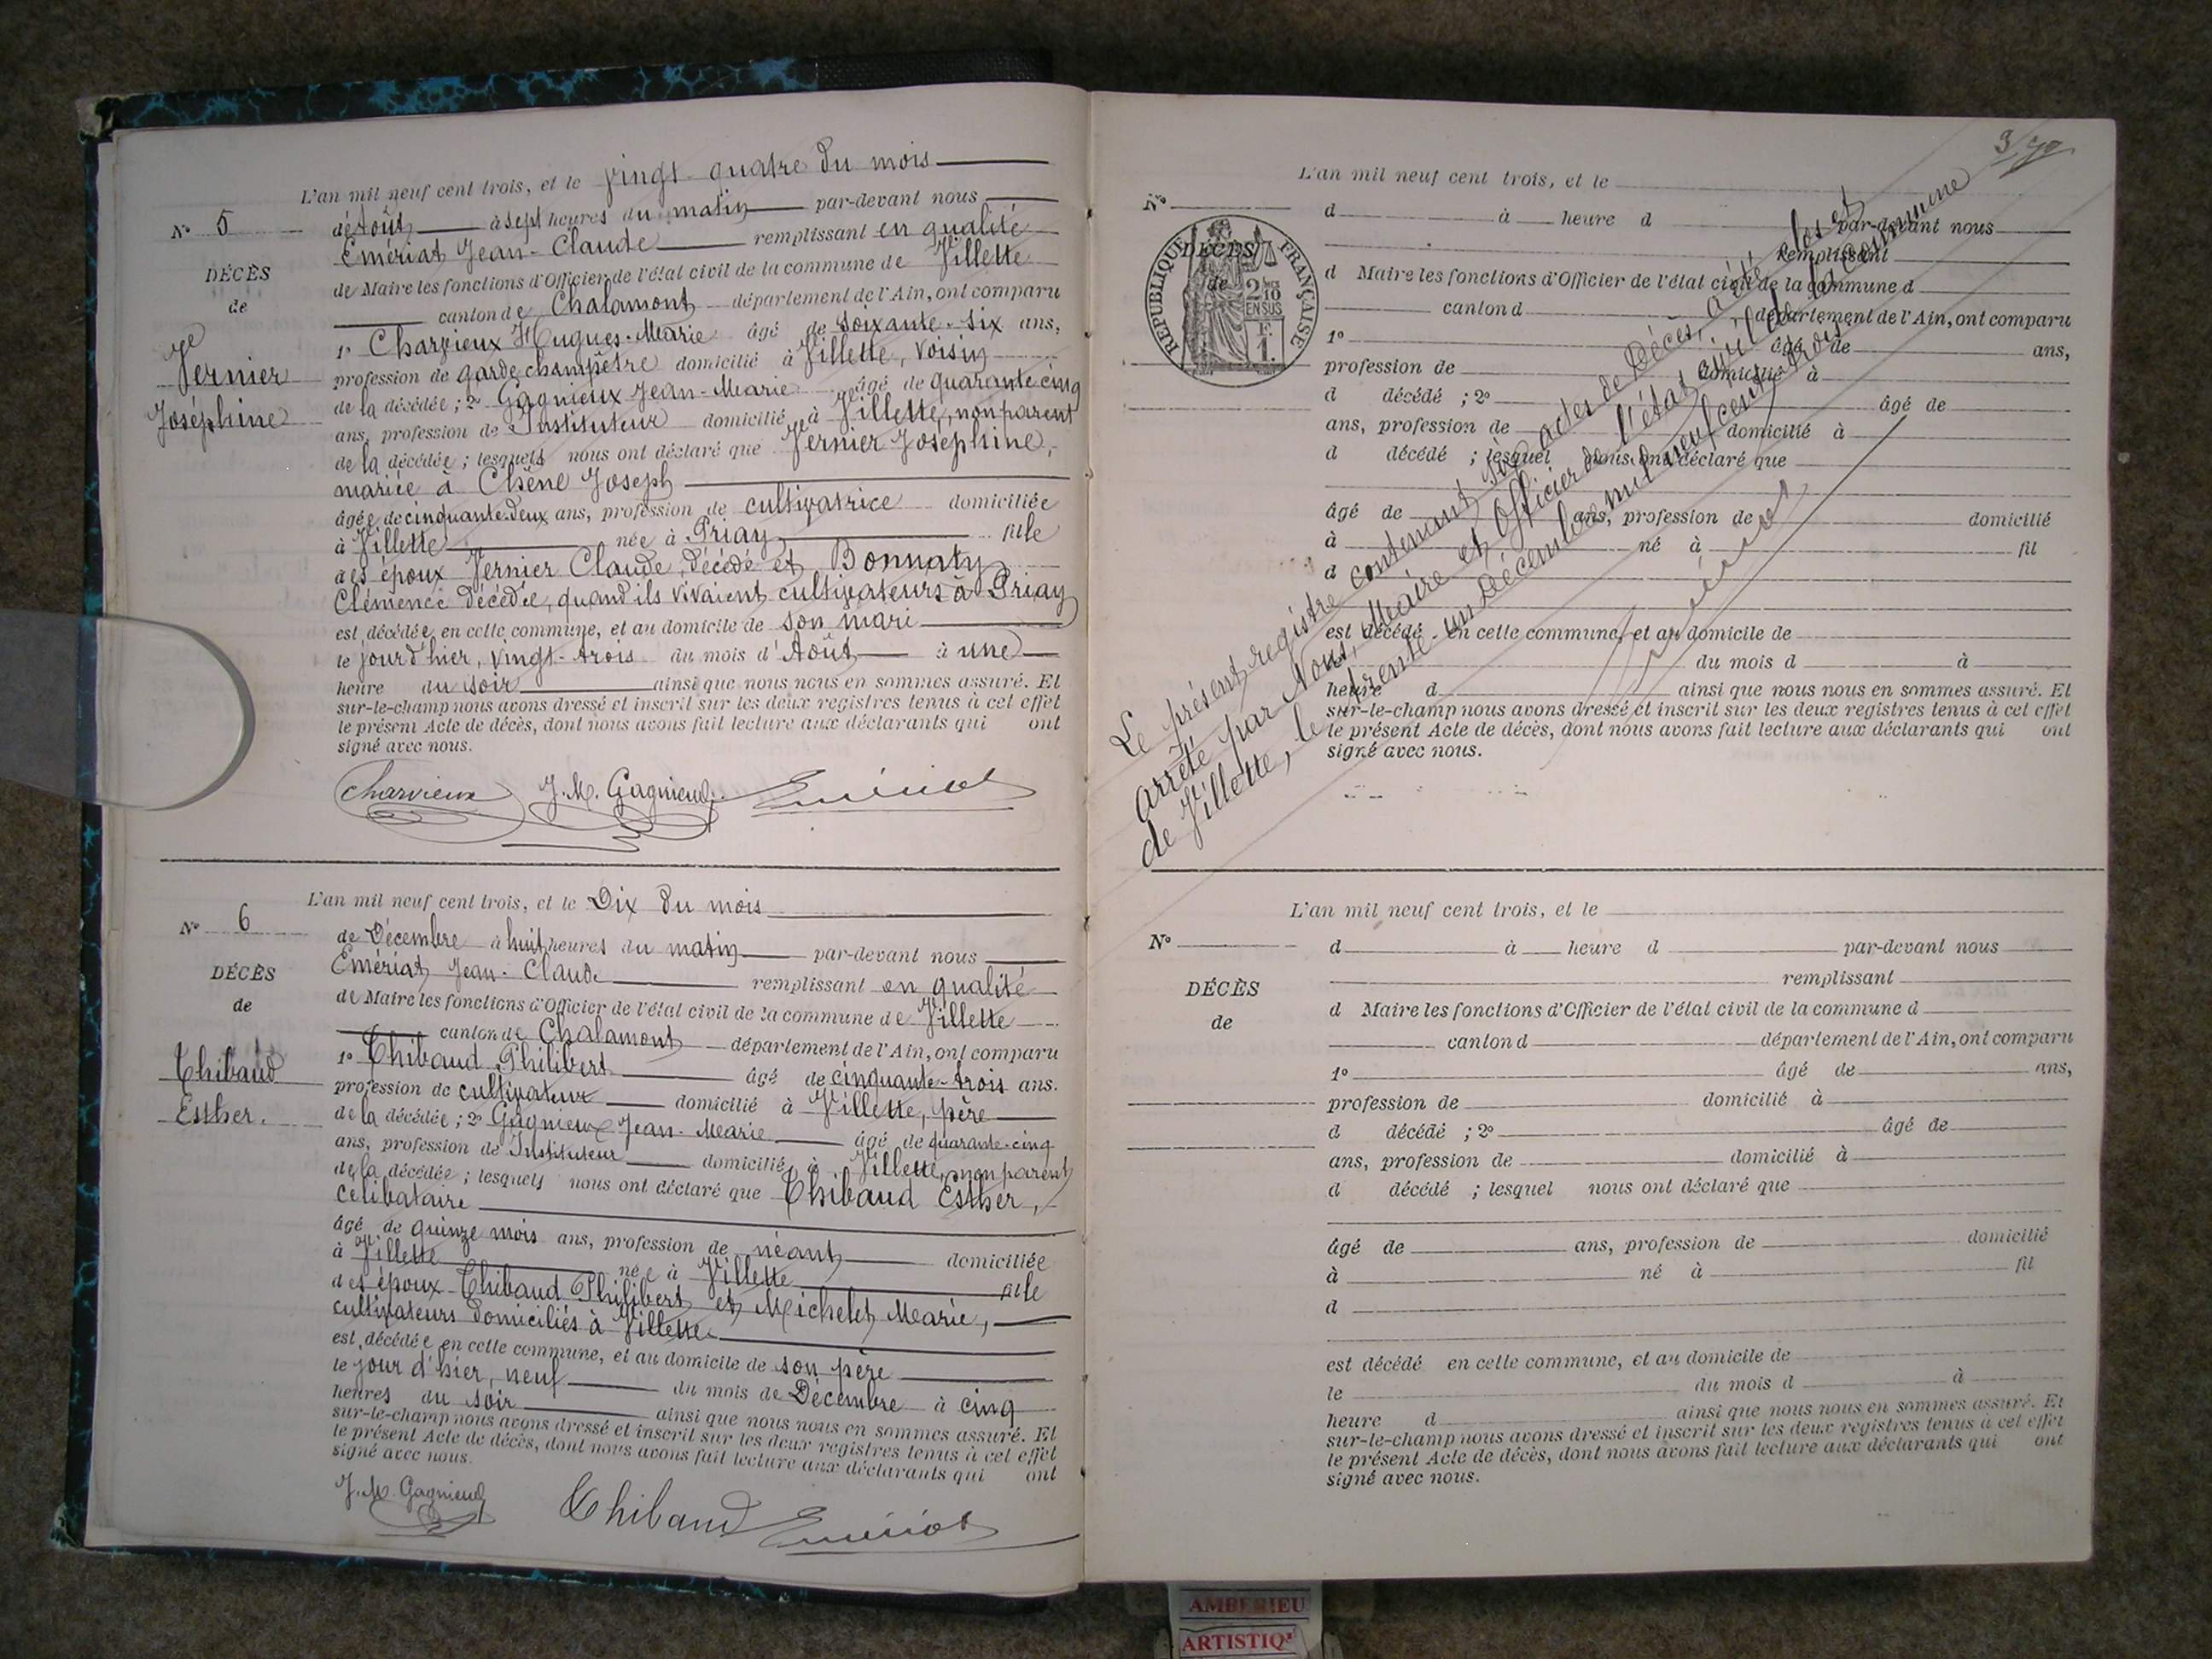 L'an mil neuf cent trois, et le vingt quatre du mois
N° 5
d'Août à sept heures du matin par-devant nous
Emériat Jean-Claude remplissant en qualité
DÉCÈS
de Maire les fonctions d'Officier de l'état civil de la commune de Villette
de
canton de Chalamont département de l'Ain, ont comparu
1° Charvieux Hugues-Marie âgé de soixante-six ans,
Vernier
profession de garde champêtre domicilié à Villette, voisin
Joséphine
de la décédée ; 2° Gagnieux Jean-Marie âgé de quarante cinq
ans, profession de Instituteur domicilié à Villette, non parent
de la décédée ; lesquels nous ont déclaré que Vernier Joséphine,
mariée à Chêne Joseph
âgée de cinquante-deux ans, profession de cultivatrice domiciliée
à Villette née à Priay fille
des époux Vernier Claude, décédé et Bonnaty
Clémence décédée, quand ils vivaient cultivateurs à Priay
est décédée en cette commune, et au domicile de son mari
le jour d'hier, vingt-trois du mois d'Août à une
heure du soir ainsi que nous nous en sommes assuré. Et
sur-le-champ nous avons dressé et inscrit sur les deux registres tenus à cet effet
le présent Acte de décès, dont nous avons fait lecture aux déclarants qui ont
signé avec nous.
Charvieux J. M. Gagnieux Emériat
L'an mil neuf cent trois, et le Dix du mois
N° 6
de Décembre à huit heures du matin par-devant nous
Emériat Jean-Claude remplissant en qualité
DÉCÈS
de Maire les fonctions d'Officier de l'état civil de la commune de Villette
de
canton de Chalamont département de l'Ain, ont comparu
Thibaud
1° Thibaud Philibert âgé de cinquante-trois ans.
profession de cultivateur domicilié à Villette, père
Esther.
de la décédée ; 2° Gagnieux Jean-Marie âgé de quarante-cinq
ans, profession de Instituteur domicilié à Villette, non parent
de la décédée ; lesquels nous ont déclaré que Thibaud Esther,
célibataire
âgé de quinze mois ans, profession de néant domiciliée
à Villette née à Villette fille
des époux Thibaud Philibert et Michelet Marie,
cultivateurs domiciliés à Villette
est décédée en cette commune, et au domicile de son père
le jour d'hier, neuf du mois de Décembre à cinq
heures du soir ainsi que nous nous en sommes assuré. Et
sur-le-champ nous avons dressé et inscrit sur les deux registres tenus à cet effet
le présent Acte de décès, dont nous avons fait lecture aux déclarants qui ont
signé avec nous.
J. M. Gagnieux Thibaud Emériat
L'an mil neuf cent trois, et le
N°
d à heure d par-devant nous
remplissant
DÉCÈS
de
RÉPUBLIQUE FRANÇAISE
2/10 EN SUS
1 F.
d Maire les fonctions d'Officier de l'état civil de la commune d
canton d département de l'Ain, ont comparu
1° âgé de ans,
profession de domicilié à
d décédé ; 2° âgé de
ans, profession de domicilié à
d décédé ; lesquel nous ont déclaré que
âgé de ans, profession de domicilié
à né à fil
d
est décédé en cette commune, et au domicile de
du mois d à
heure d ainsi que nous nous en sommes assuré. Et
sur-le-champ nous avons dressé et inscrit sur les deux registres tenus à cet effet
le présent Acte de décès, dont nous avons fait lecture aux déclarants qui ont
signé avec nous.
Le présent registre contenant six actes de Décès, a été clos et
arrêté par Nous, Maire et Officier de l'état civil de la Commune
de Villette, le trente un Décembre mil neuf cent trois
Emériat
L'an mil neuf cent trois, et le
N°
d à heure d par-devant nous
remplissant
DÉCÈS
d Maire les fonctions d'Officier de l'état civil de la commune d
de
canton d département de l'Ain, ont comparu
1° âgé de ans,
profession de domicilié à
d décédé ; 2° âgé de
ans, profession de domicilié à
d décédé ; lesquel nous ont déclaré que
âgé de ans, profession de domicilié
à né à fil
d
est décédé en cette commune, et au domicile de
le du mois d à
heure d ainsi que nous nous en sommes assuré. Et
sur-le-champ nous avons dressé et inscrit sur les deux registres tenus à cet effet
le présent Acte de décès, dont nous avons fait lecture aux déclarants qui ont
signé avec nous.
AMBERIEU
ARTISTIQ